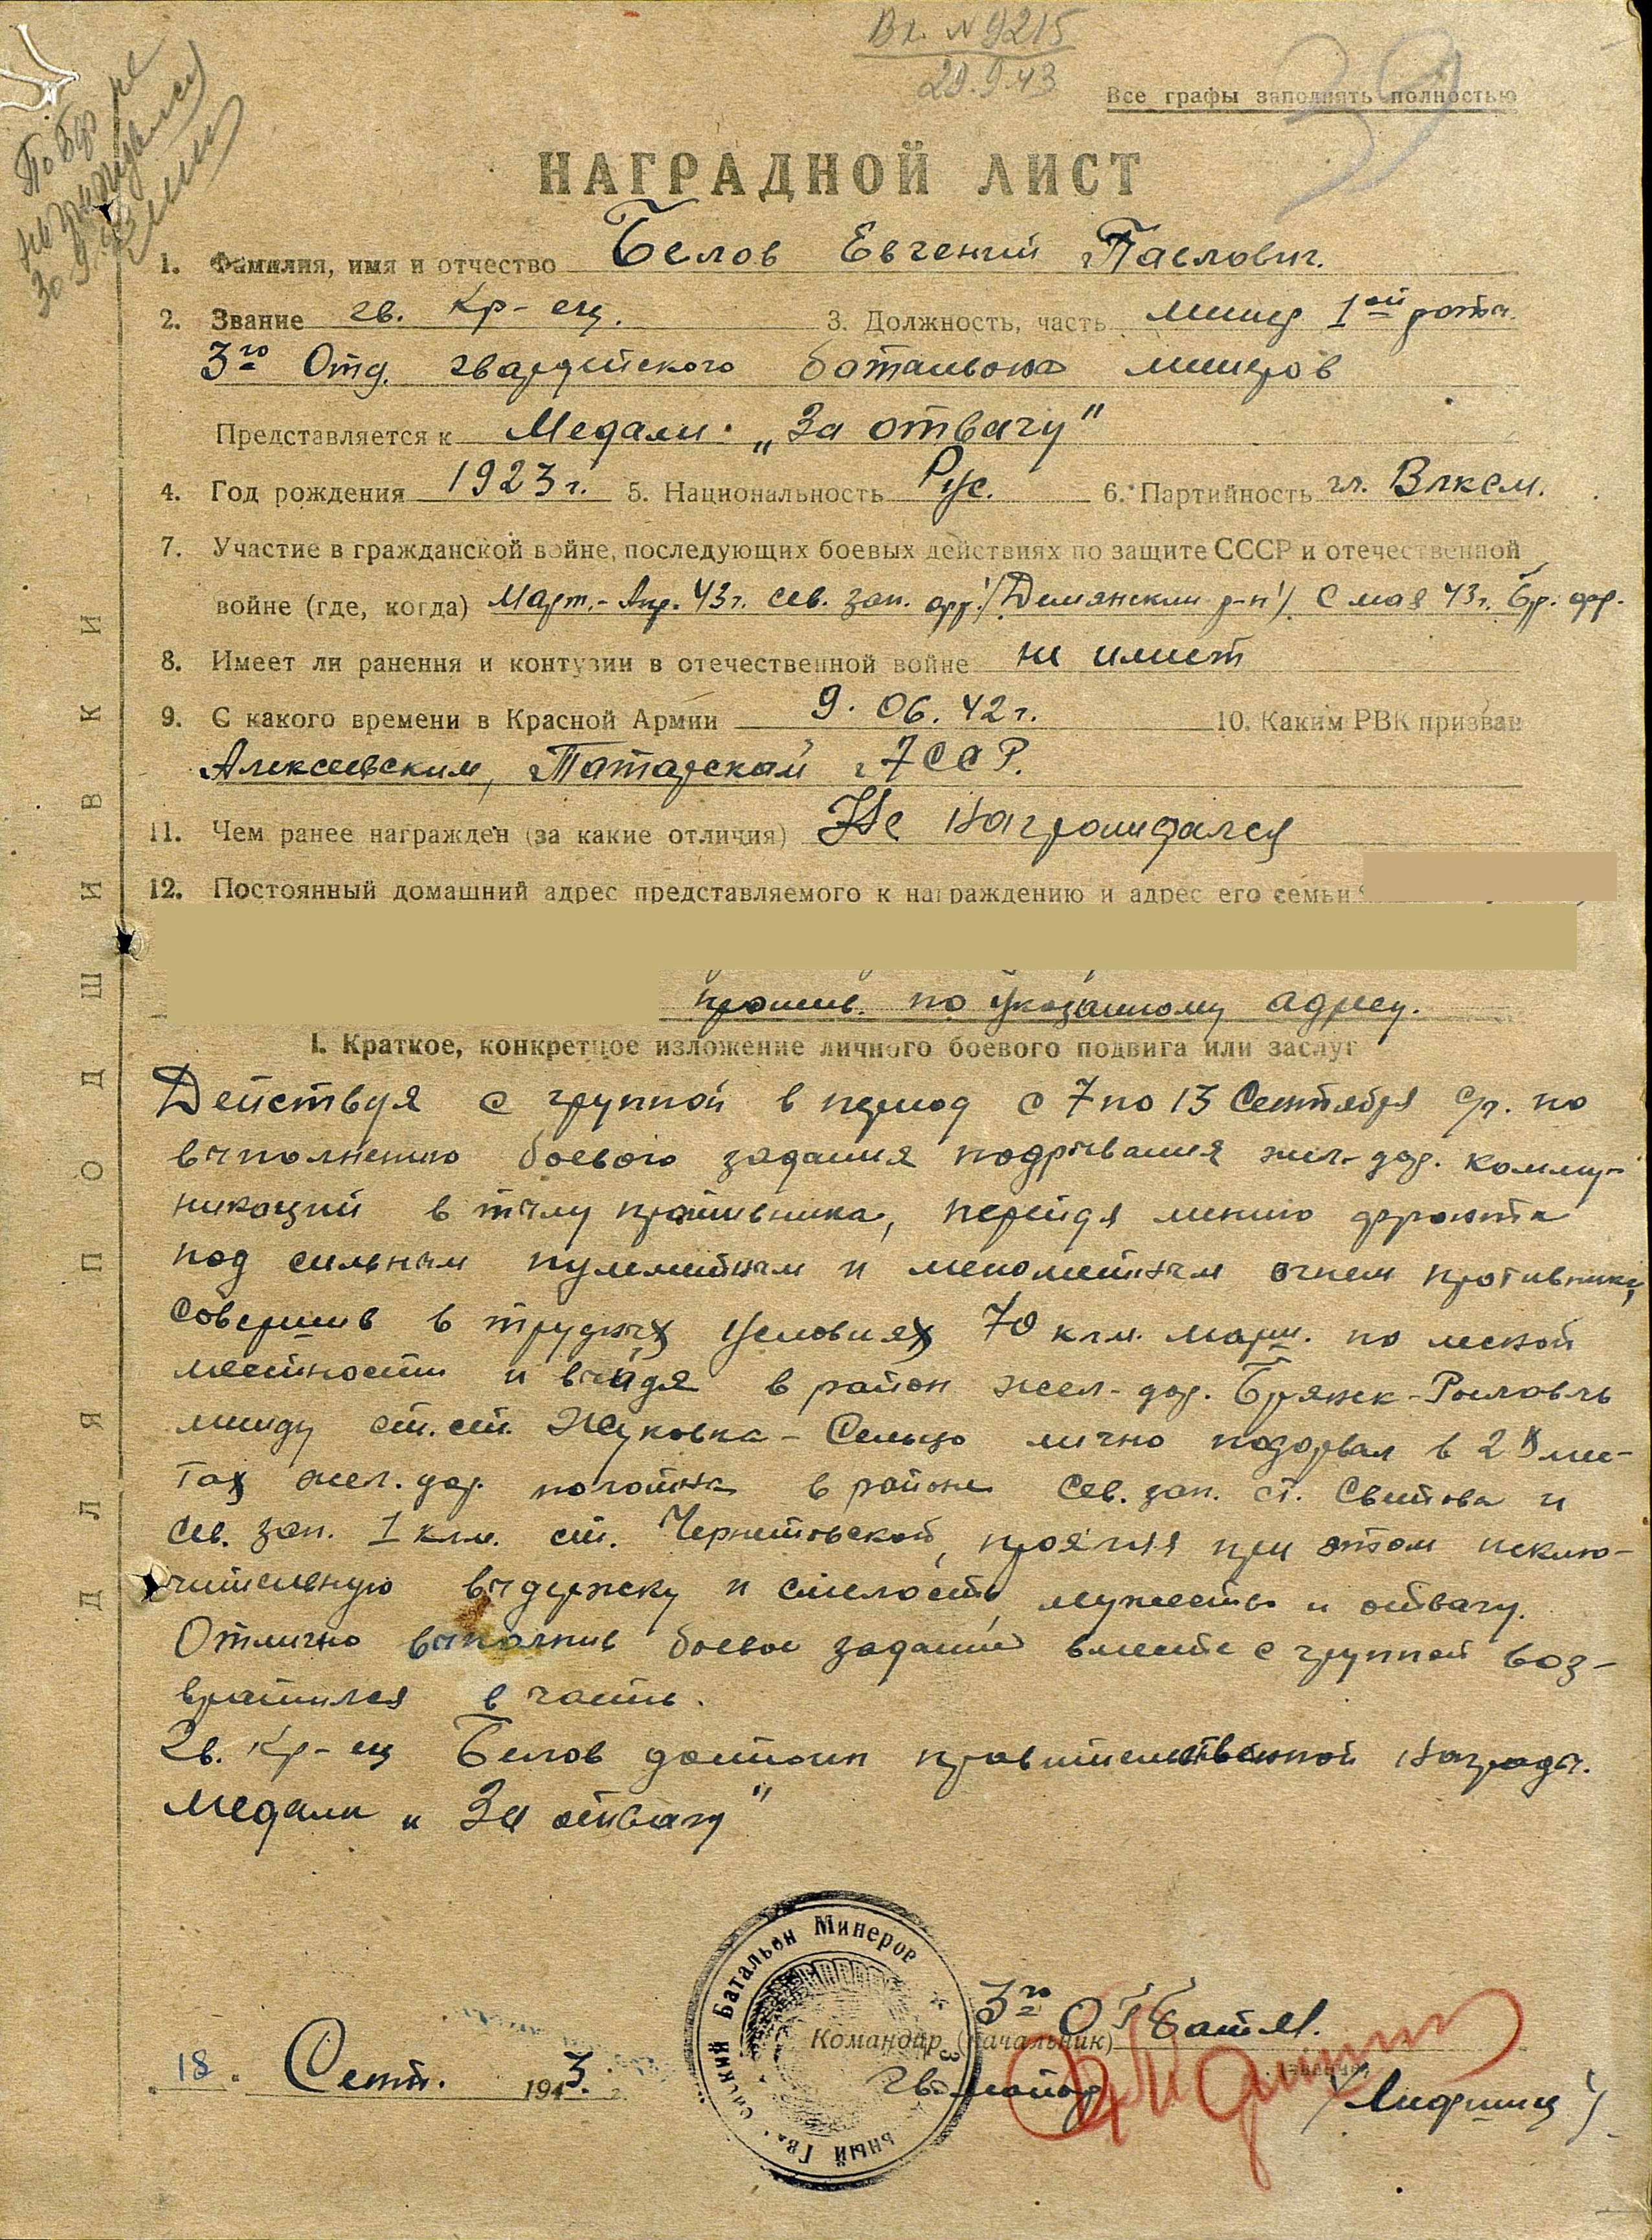 Вх. N 9215
29.9.43
39
Все графы заполнять полностью
НАГРАДНОЙ ЛИСТ
1. Фамилия, имя и отчество Белов Евгений Павлович.
2. Звание гв. Кр-ец. 3. Должность, часть минер 1ой роты
3го Отд. гвардейского батальона минеров
Представляется к Медали „За отвагу"
4. Год рождения 1923 г. 5. Национальность Рус. 6. Партийность чл. Влксм.
7. Участие в гражданской войне, последующих боевых действиях по защите СССР и отечественной
войне (где, когда) Март.-Апр. 43г. сев. зап. фр. /Демянский р-н/ С мая 43г. Бр. фр.
8. Имеет ли ранения и контузии в отечественной войне не имеет
9. С какого времени в Красной Армии 9. 06. 42 г. 10. Каким РВК призван
Алексеевским, Татарской АССР.
11. Чем ранее награжден (за какие отличия) Не награждался
12. Постоянный домашний адрес представляемого к награждению и адрес его семьи
прожив. по указанному адресу.
I. Краткое, конкретное изложение личного боевого подвига или заслуг
Действуя с группой в период с 7 по 13 Сентября с/г. по
выполнению боевого задания подрывания жел-дор. комму-
никаций в тылу противника, перейдя линию фронта
под сильным пулеметным и минометным огнем противника,
совершив в трудных условиях 70 клм. марш. по лесной
местности и выйдя в район жел-дор. Брянск-Рославль
между ст.ст. Жуковка - Сельцо лично подорвал в 2х мес-
тах жел. дор. полотна в районе Сев. зап. ст. и
Сев. зап. 1 клм. ст. проявив при этом исклю-
чительную выдержку и смелость, мужество и отвагу.
Отлично выполнив боевое задание вместе с группой воз-
вратился в часть.
Гв. Кр-ец Белов достоин правительственной награды.
Медали „За отвагу"
3го ОГБатМ.
Командир (начальник)
гв. майор
18. Сент. 1943 г.
Батальон Минеров
ДЛЯ ПОДШИВКИ